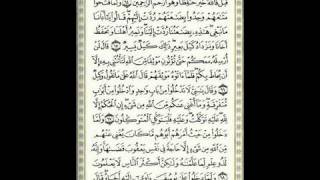 قَبْلُ فَٱللَّهُ خَيْرٌ حَٰفِظًا وَهُوَ أَرْحَمُ ٱلرَّٰحِمِينَ ٦٤ وَلَمَّا فَتَحُوا۟
مَتَٰعَهُمْ وَجَدُوا۟ بِضَٰعَتَهُمْ رُدَّتْ إِلَيْهِمْ قَالُوا۟ يَٰٓأَبَانَا
مَا نَبْغِى هَٰذِهِۦ بِضَٰعَتُنَا رُدَّتْ إِلَيْنَا وَنَمِيرُ أَهْلَنَا وَنَحْفَظُ
أَخَانَا وَنَزْدَادُ كَيْلَ بَعِيرٍ ذَٰلِكَ كَيْلٌ يَسِيرٌ ٦٥ قَالَ لَنْ
أُرْسِلَهُۥ مَعَكُمْ حَتَّىٰ تُؤْتُونِ مَوْثِقًا مِّنَ ٱللَّهِ لَتَأْتُنَّنِى بِهِۦٓ إِلَّآ
أَن يُحَاطَ بِكُمْ فَلَمَّآ ءَاتَوْهُ مَوْثِقَهُمْ قَالَ ٱللَّهُ عَلَىٰ مَا نَقُولُ وَكِيلٌ
٦٦ وَقَالَ يَٰبَنِىَّ لَا تَدْخُلُوا۟ مِنۢ بَابٍ وَٰحِدٍ وَٱدْخُلُوا۟ مِنْ أَبْوَٰبٍ
مُّتَفَرِّقَةٍ وَمَآ أُغْنِى عَنكُم مِّنَ ٱللَّهِ مِن شَىْءٍ إِنِ ٱلْحُكْمُ إِلَّا
لِلَّهِ عَلَيْهِ تَوَكَّلْتُ وَعَلَيْهِ فَلْيَتَوَكَّلِ ٱلْمُتَوَكِّلُونَ ٦٧ وَلَمَّا
دَخَلُوا۟ مِنْ حَيْثُ أَمَرَهُمْ أَبُوهُم مَّا كَانَ يُغْنِى عَنْهُم
مِّنَ ٱللَّهِ مِن شَىْءٍ إِلَّا حَاجَةً فِى نَفْسِ يَعْقُوبَ قَضَىٰهَا وَإِنَّهُۥ
لَذُو عِلْمٍ لِّمَا عَلَّمْنَٰهُ وَلَٰكِنَّ أَكْثَرَ ٱلنَّاسِ لَا يَعْلَمُونَ
٦٨ وَلَمَّا دَخَلُوا۟ عَلَىٰ يُوسُفَ ءَاوَىٰٓ إِلَيْهِ أَخَاهُ قَالَ